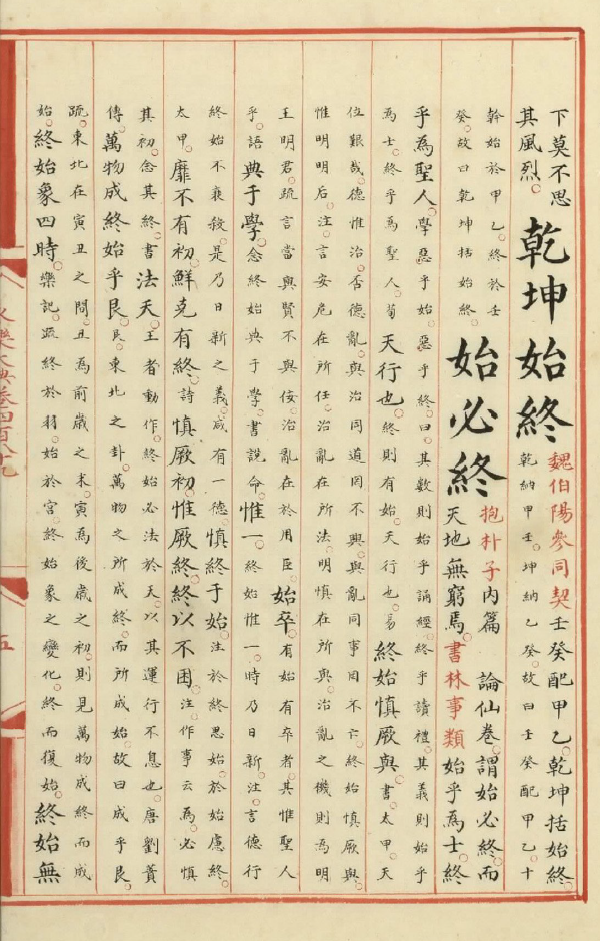 下莫不思
其風烈。
乾坤始終
魏伯陽參同契壬癸配甲乙。乾坤括始終。
乾納甲壬。坤納乙癸。故曰壬癸配甲乙十
幹始於甲乙。終於壬
癸。故曰乾坤括始終。
始必終
抱朴子內篇 論仙卷。謂始必終。而
天地無窮焉。書林事類始乎為士。終
乎為聖人。學惡乎始。惡乎終。曰。其數則始乎誦經。終乎讀禮。其義則始乎
為士。終乎為聖人。荀 天行也。終則有始。天行也。易 終始慎厥與。書。太甲。天
位艱哉。德惟治。否德亂。與治同道罔不興。與亂同事罔不亡。終始慎厥與。
惟明明后。注。言安危在所任。治亂在所法。明慎在所與。治亂之機則為明
王明君。疏言當與賢不與佞。治亂在於用臣。始卒。有始有卒者。其惟聖人
乎。語 典于學。念終始典于學。書說命。惟一。終始惟一。時乃日新。注。言德行
終始不衰殺。是乃日新之義。咸有一德。慎終于始。注於終思始。於始慮終。
太甲。靡不有初。鮮克有終。詩 慎厥初。惟厥終。終以不困。注。作事云為。必慎
其初。念其終。書 法天。王者動作。終始必法於天。以其運行不息也。唐劉蕡
傳。萬物成終始乎艮。艮。東北之卦。萬物之所成終。而所成始。故曰成乎艮。
疏。東北在寅丑之間。丑為前歲之末。寅為後歲之初。則見萬物成終而成
始。終始象四時。樂記。疏終於羽。始於宮。終始象之變化。終而復始。終始無
永樂大典卷四百八十九
五